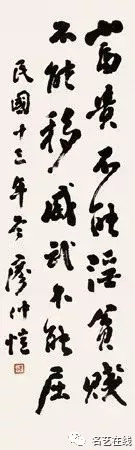 富贵不能淫贫賤
不能移威武不能屈
民國十三年冬廖仲愷
名艺在线